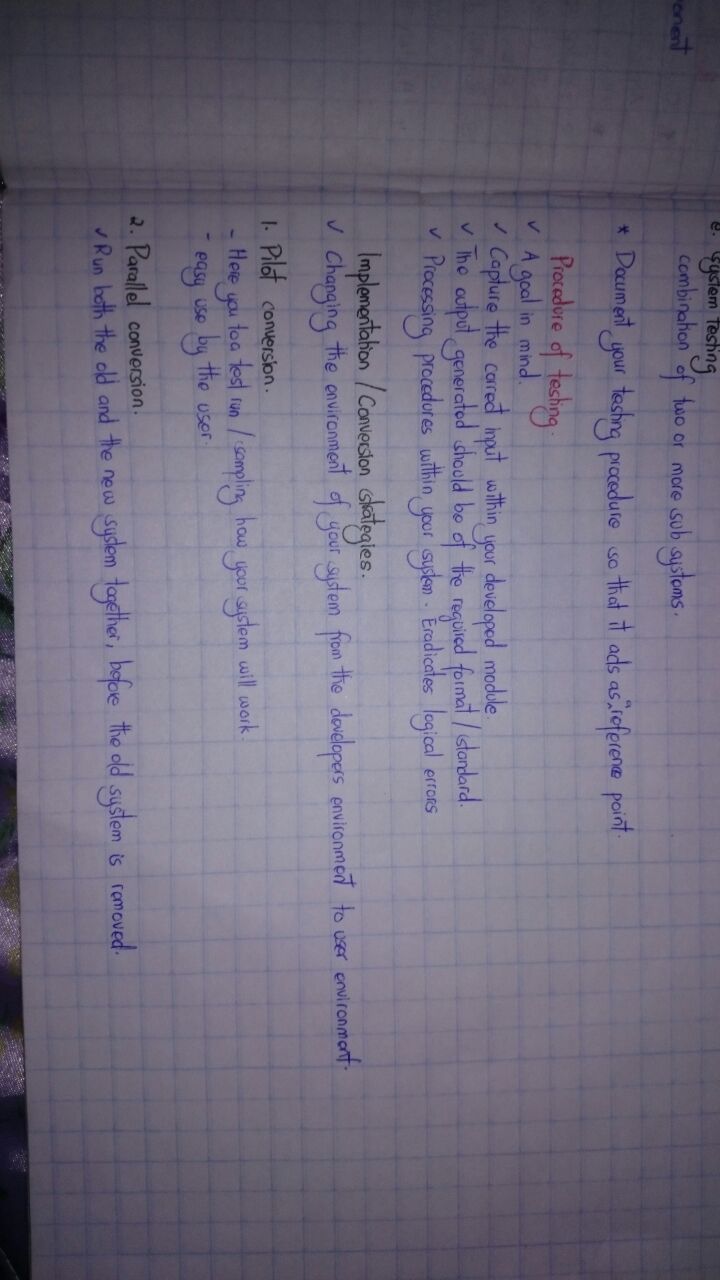 2. System Testing
combination of two or more sub systems.
* Document your testing procedure so that it acts as a reference point.
Procedure of testing.
✓ A goal in mind.
✓ Capture the correct input within your developed module.
✓ The output generated should be of the required format / standard.
✓ Processing procedures within your system. Eradicates logical errors
Implementation / Conversion strategies.
✓ Changing the environment of your system from the developers environment to user environment.
1. Pilot conversion.
- Here you too test run / sampling how your system will work.
- easy use by the user.
2. Parallel conversion.
✓ Run both the old and the new system together, before the old system is removed.